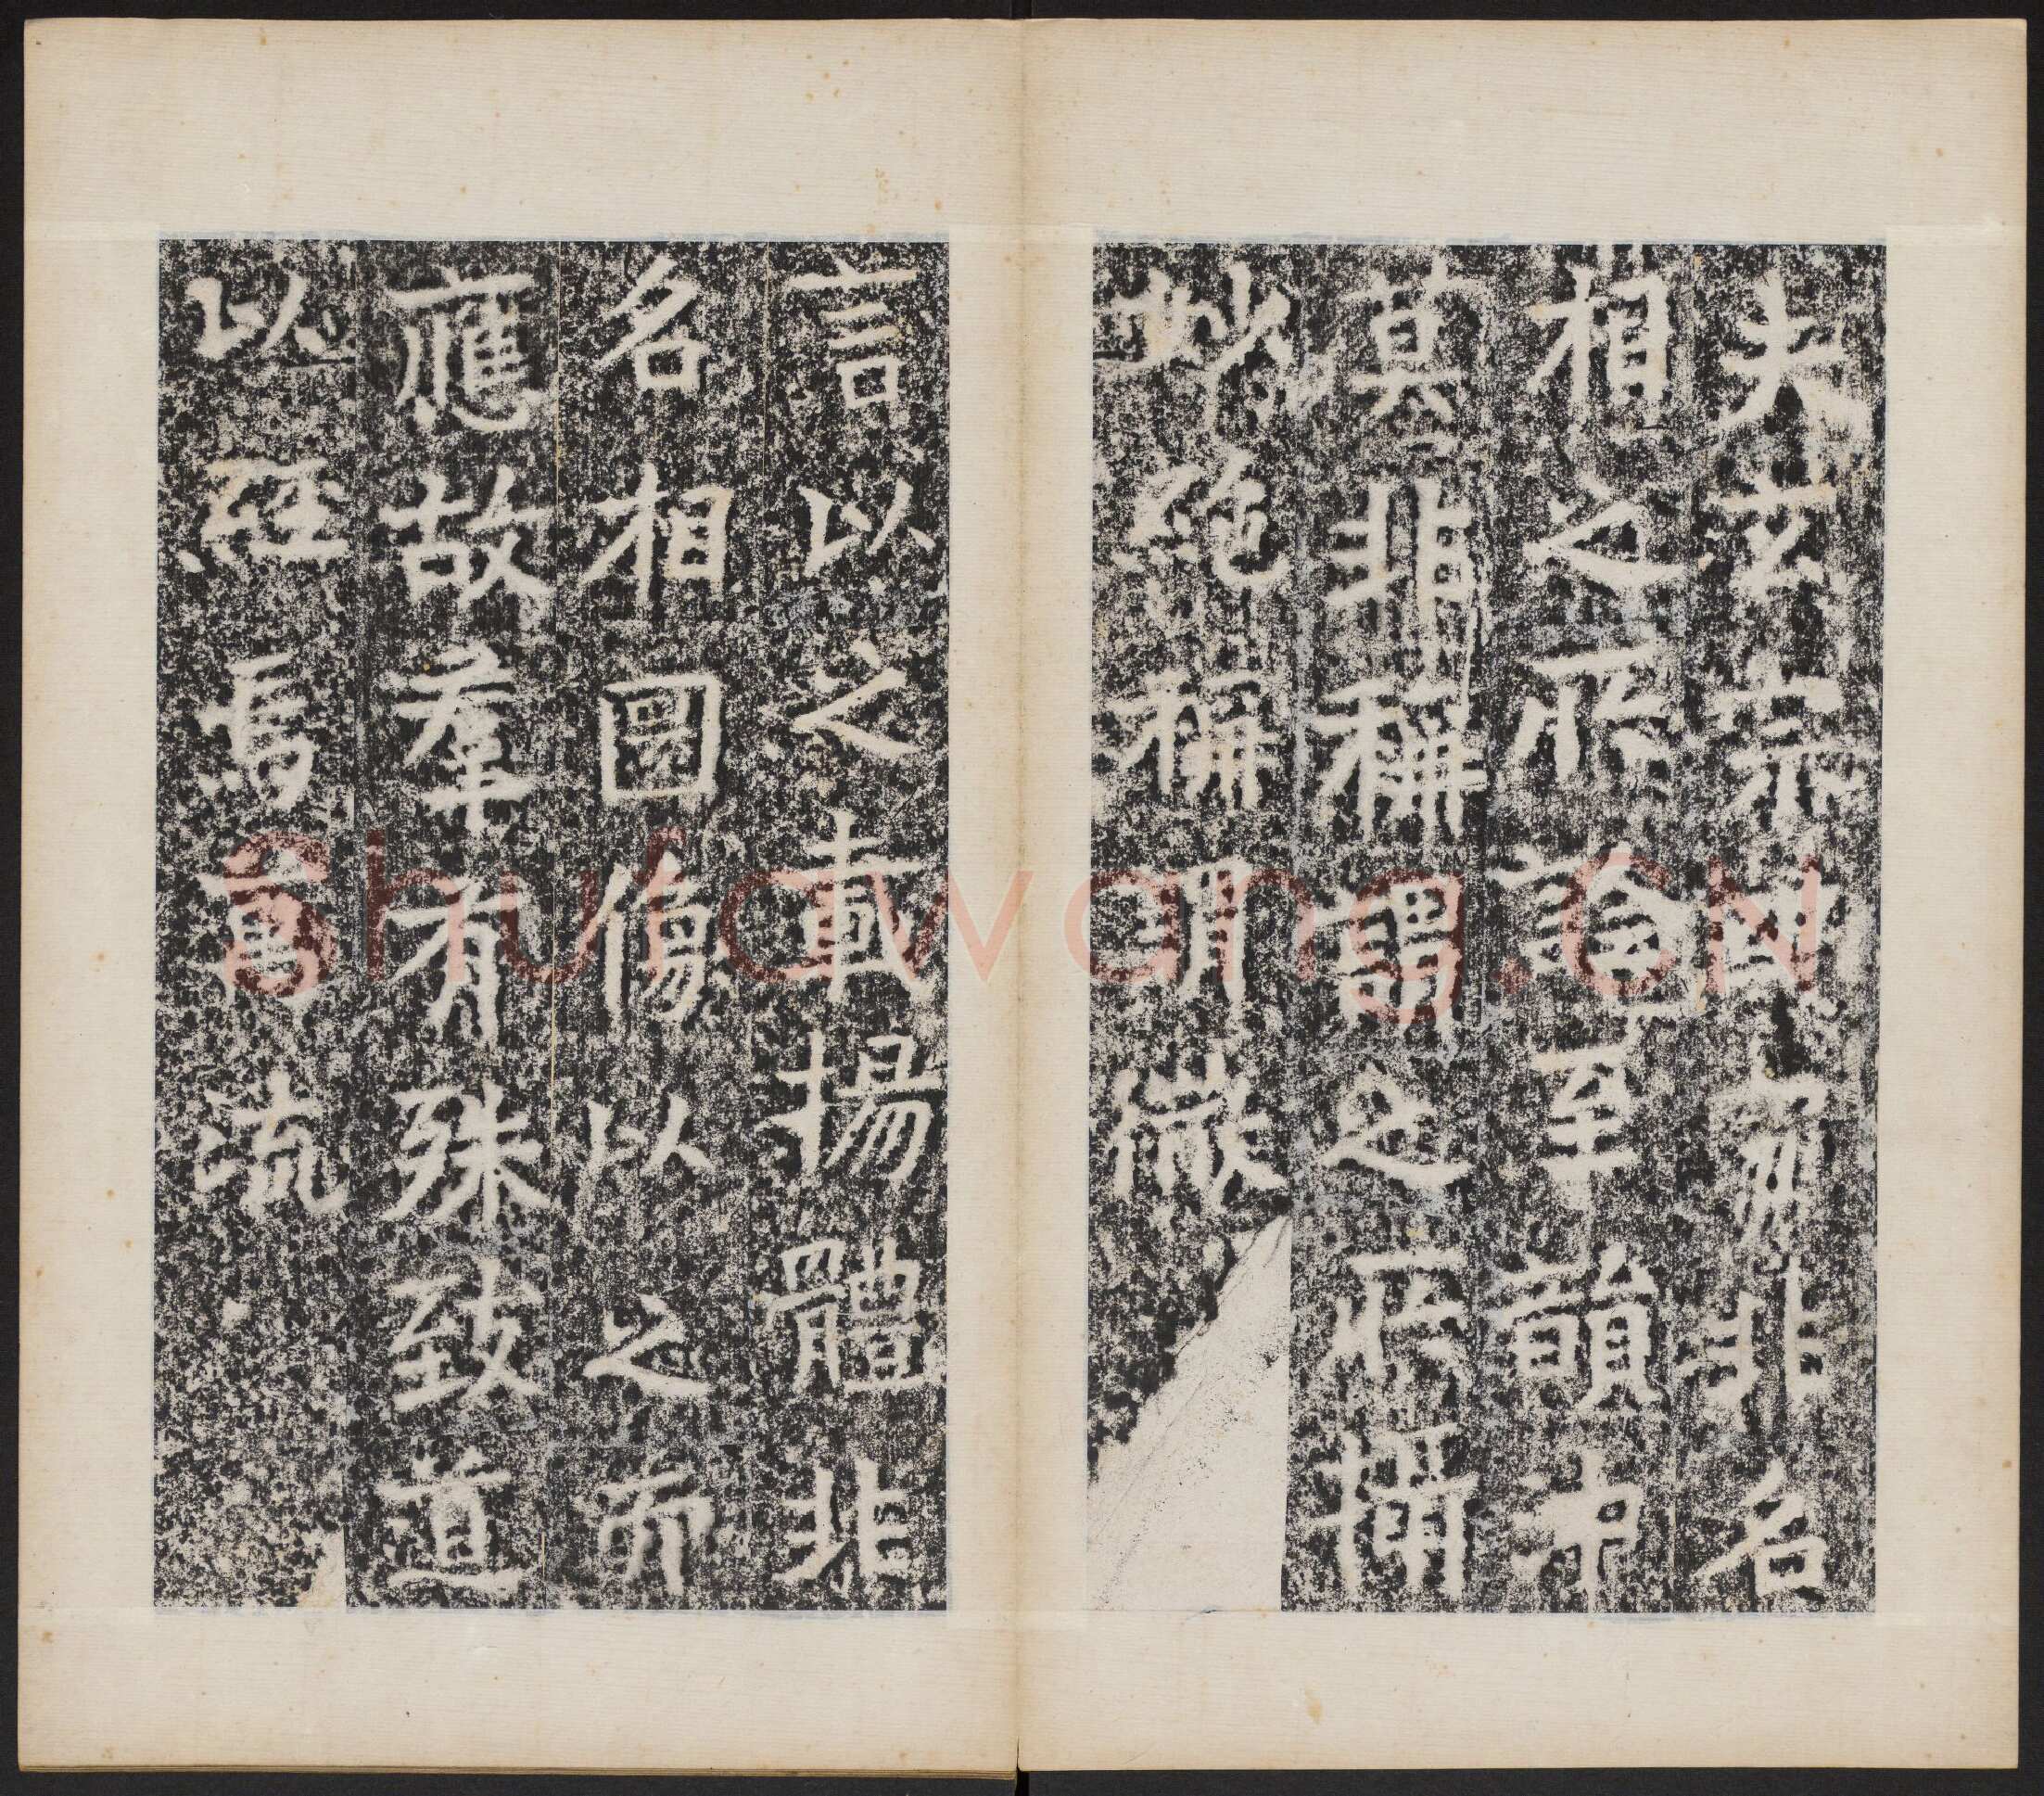 夫玄宗幽寂非名
相之所論至韻沖
莫非稱謂之所搆
妙絕稱謂微
言以之載揚體非
名相圖像以之而
應故羣有殊致道
以經焉萬流
Shufawang.CN